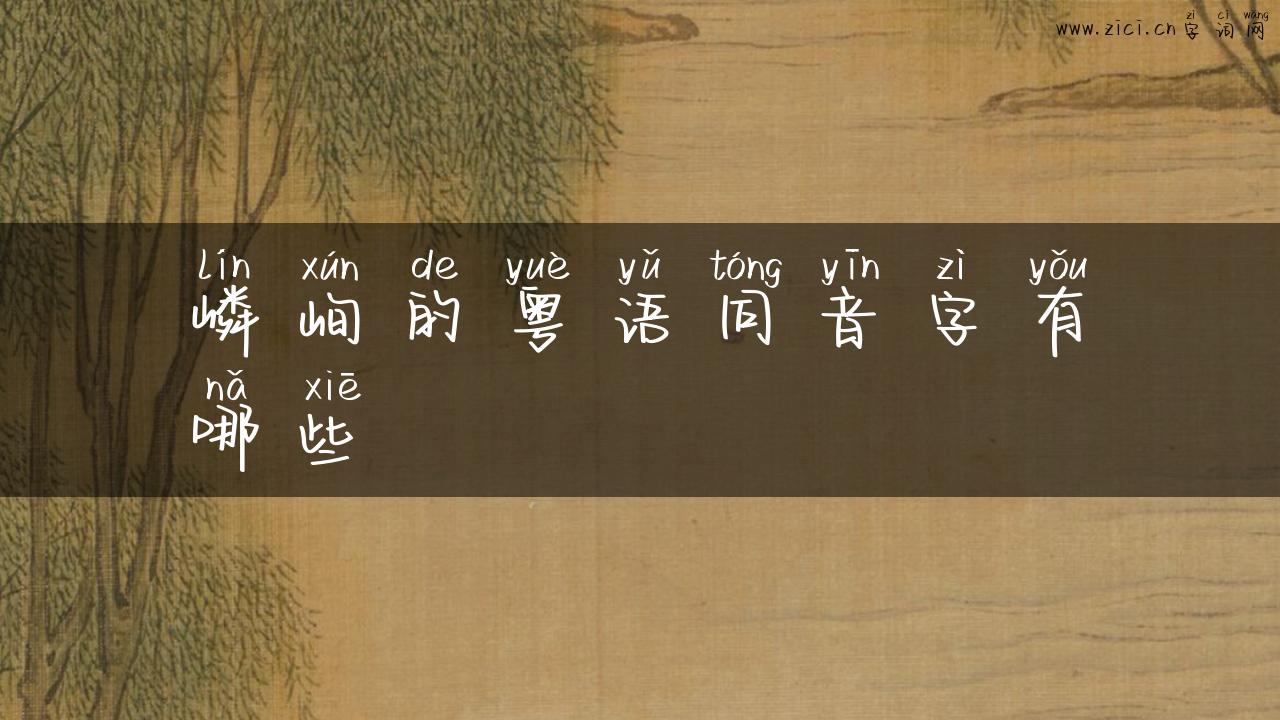 zì cí wǎng
www.zici.cn 字 词 网
lín xún de yuè yǔ tóng yīn zì yǒu
嶙 峋 的 粤 语 同 音 字 有
nǎ xiē
哪 些